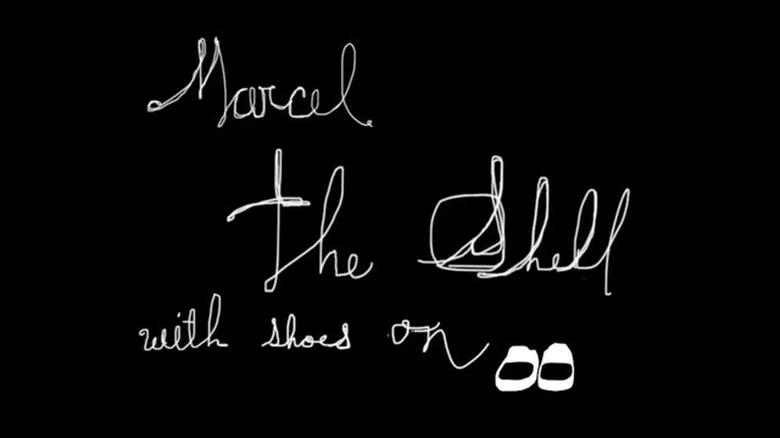 Marcel
The Shell
with shoes on